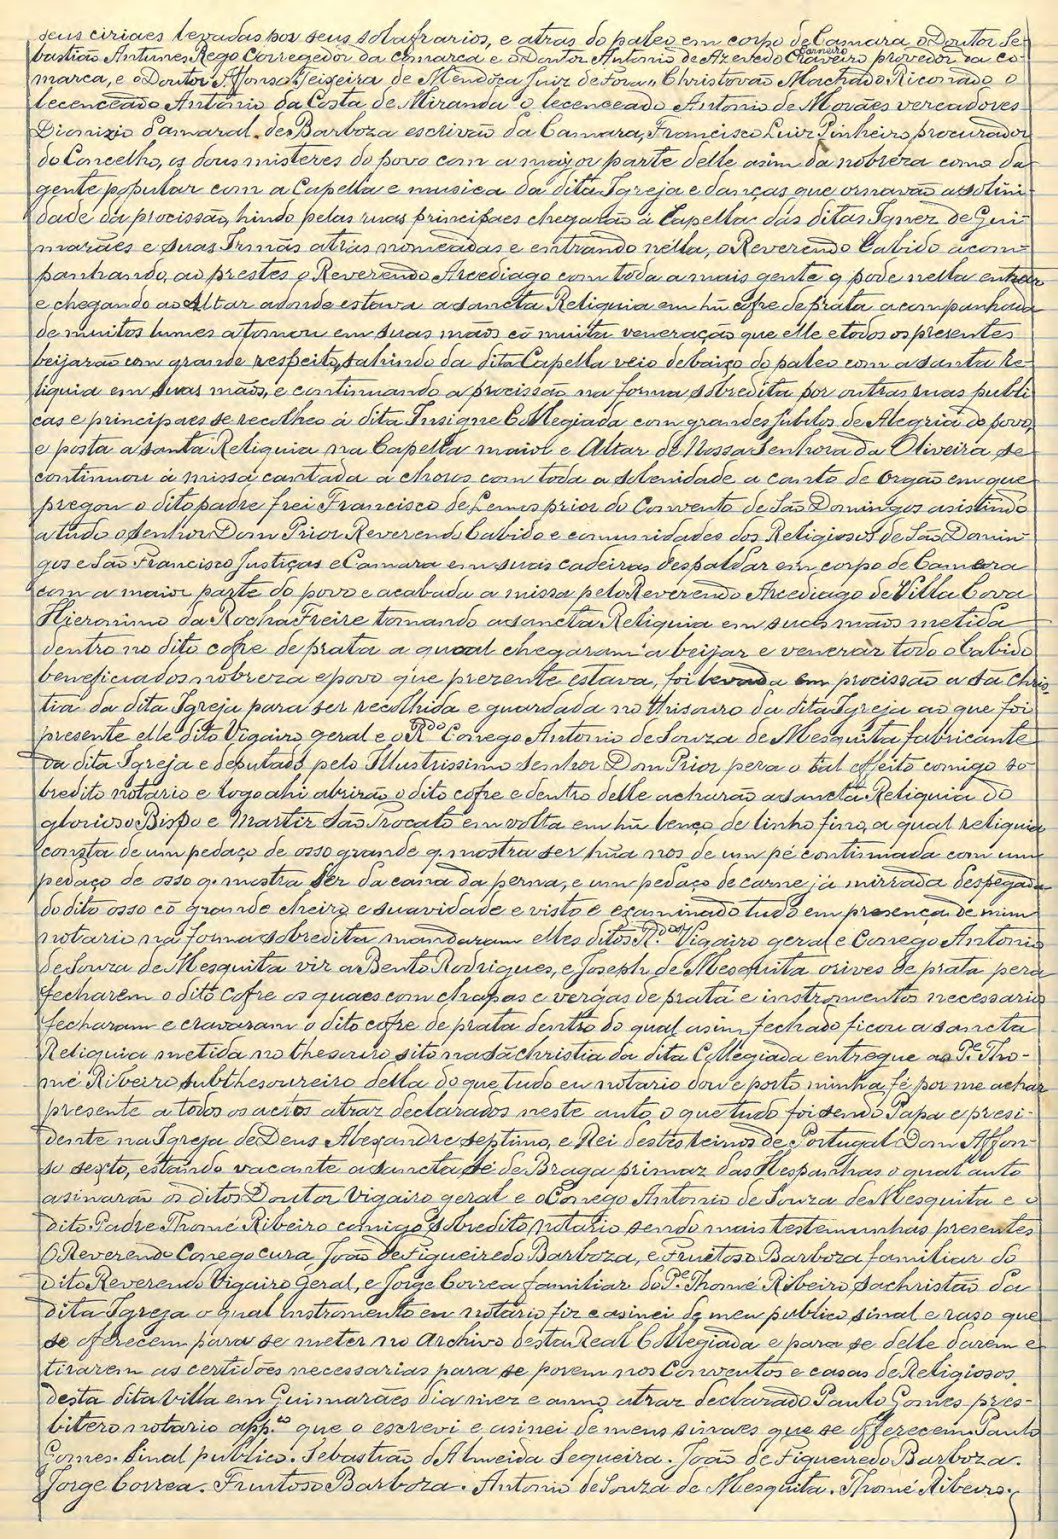 seus ciriaes levadas por seus sobafrarios, e atras do paleo em corpo de Camara o Doutor Se-
bastião Antunes Rego Corregedor da comarca e o Doutor Antonio de Azevedo Carneiro Craveiro provedor da co-
marca, e o Doutor Affonso Teixeira de Mendoça Juiz de Fora, Christovão Machado Riconado o
lecenceado Antonio da Costa de Miranda o lecenceado Antonio de Movães vereadores
Dionizio d'amaral de Barboza escrivão da Camara, Francisco Luis Pinheiro procurador
do Concelho, os dous misteres do povo com a mayor parte delle asim da nobreza como da
gente popular com a Capella e musica da dita Igreja e danças que ornavão a solini-
dade da procissão, hindo pelas ruas principaes chegarão á Capella das ditas Ignez de Gui-
marães e suas Irmãs atras nomeadas e entrando nella, o Reverendo Cabido acom-
panhando, ao prestes o Reverendo Arcediago com toda a mais gente q pode nella entrar
e chegando ao Altar adonde estava a sancta Reliquia em hũ cofre de prata acompanhada
de muitos lumes a tomou em suas maõs cõ muita veneração que elle e todos os presentes
beijarão com grande respeito, sahindo da dita Capella veio debaixo do paleo com a santa Re-
liquia em suas mãos, e continuando a procissão na forma sobredita por outras ruas publi-
cas e principaes se recolheo á dita Insigne Collegiada com grandes Jubilos de Alegria do povo,
e posta a santa Reliquia na Capella maior e Altar de Nossa Senhora da Oliveira, se
continuou á missa cantada a choros com toda a solenidade a canto de orgão em que
pregou o dito padre frei Francisco de Lemos prior do Convento de São Domingos asistindo
a tudo o senhor Dom Prior Reverendo Cabido e comunidades dos Religiosos de São Domin-
gos e São Francisco Justiças e Camara em suas cadeiras despaldar em corpo de Camera
com a maior parte do povo e acabada a missa pelo Reverendo Arcediago de Villa Cova
Hieronimo da Rocha Freire tomando a sancta Reliquia em suas mãos metida
dentro no dito cofre de prata a qual chegaram a beijar e venerar todo o Cabido
beneficiados nobreza e povo que prezente estava, foi levada em procissão a sachris-
tia da dita Igreja para ser recolhida e guardada no thisouro da dita Igreja ao que foi
presente elle dito Vigairo geral e o Rdo Conego Antonio de Souza de Mesquita fabricante
da dita Igreja e deputado pelo Illustrissimo Senhor Dom Prior pera o tal effeito comigo so-
bredito notario e logo ahi abrirão o dito cofre e dentro delle acharão a sancta Reliquia do
glorioso Bispo e Martir São Trocato em volta em hũ lenço de linho fino, a qual reliquia
consta de um pedaço de osso grande q. mostra ser hũa nos de um pé continuada com um
pedaço de osso q. mostra ser da cana da perna, e um pedaço de carne já mirrada despegada
do dito osso cõ grande cheiro e suavidade e visto e examinado tudo em presença de mim
notario na forma sobredita mandaram elles ditos Rdos Vigairo geral e Conego Antonio
de Souza de Mesquita vir a Bento Rodrigues, e Joseph de Mesquita orives de prata pera
fecharem o dito cofre os quaes com chapas e vergas de prata e instromentos necessarios
fecharam e cravaram o dito cofre de prata dentro do qual asim fechado ficou a sancta
Reliquia metida no thesouro sito na sãchristia da dita Collegiada entregue ao Pe. Tho-
mé Ribeiro subthesoureiro della do que tudo eu notario dou e porto minha fé por me achar
presente a todos os actos atraz declarados neste auto, o que tudo foi sendo Papa e presi-
dente na Igreja de Deus Alexandre septimo, e Rei destes reinos de Portugal Dom Affon-
so sexto, estando vacante a sancta sé de Braga primaz das Hespanhas o qual auto
asinarão os ditos Doutor Vigairo geral e o Conego Antonio de Souza de Mesquita e o
dito Padre Thomé Ribeiro comigo sobredito notario sendo mais testemunhas presentes
O Reverendo Conego cura João de Figueiredo Barboza, e Fructoso Barboza familiar do
dito Reverendo Vigairo Geral, e Jorge Correa familiar do Pe. Thomé Ribeiro sachristão da
dita Igreja o qual instromento eu notario fiz e asinei de meu publico sinal e raso que
se oferecem para se meter no Archivo desta Real Collegiada e para se delle darem e
tirarem as certidões necessarias para se porem nos Conventos e casas de Religiosos
desta dita Villa em Guimarães dia mez e anno atraz declarado Paulo Gomes pres-
bitero notario app.co que o escrevi e asinei de meus sinaes que se offerecem Paulo
Gomes. Sinal publico. Sebastião d'Almeida Sequeira. João de Figueiredo Barboza.
Jorge Correa. Fructoso Barboza. Antonio de Souza de Mesquita. Thomé Ribeiro.